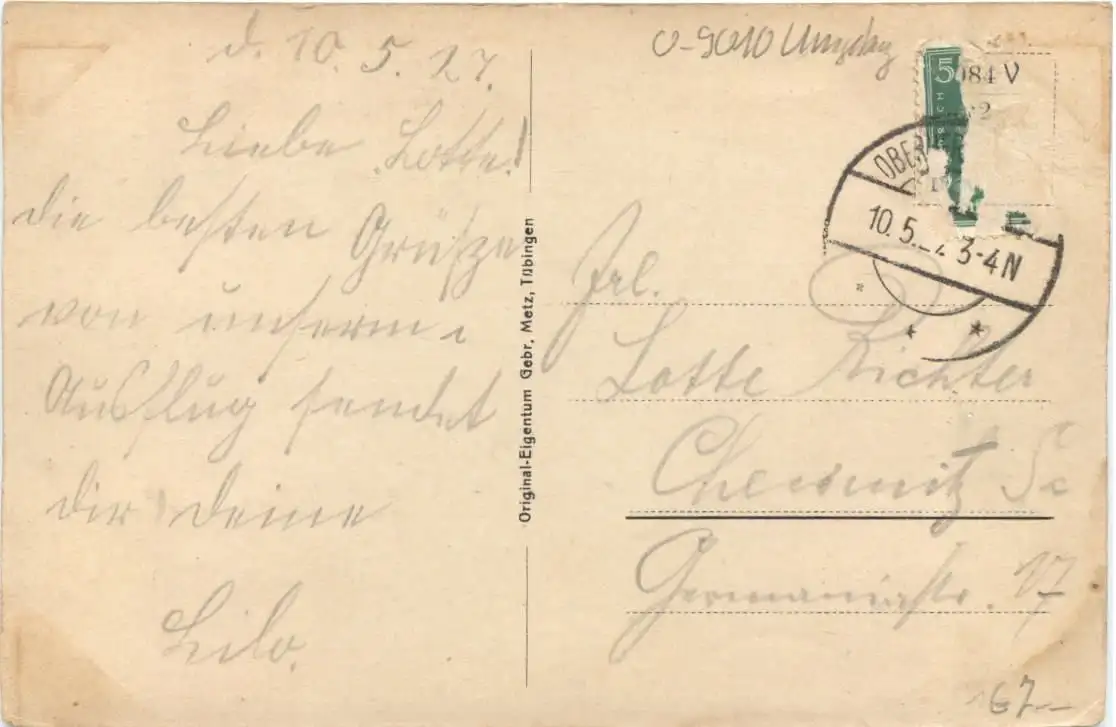 d. 10. 5. 27.
Liebe Lotte!
die besten Grüsze
von unserm
Ausflug sendet
dir deine
Lilo.
Original-Eigentum Gebr. Metz, Tübingen
O-9010 Umgebg
5
084 V
OBER
10.5. 3-4N
Frl.
Lotte Richter
Chemnitz Sa
Germaniastr. 17
67.-